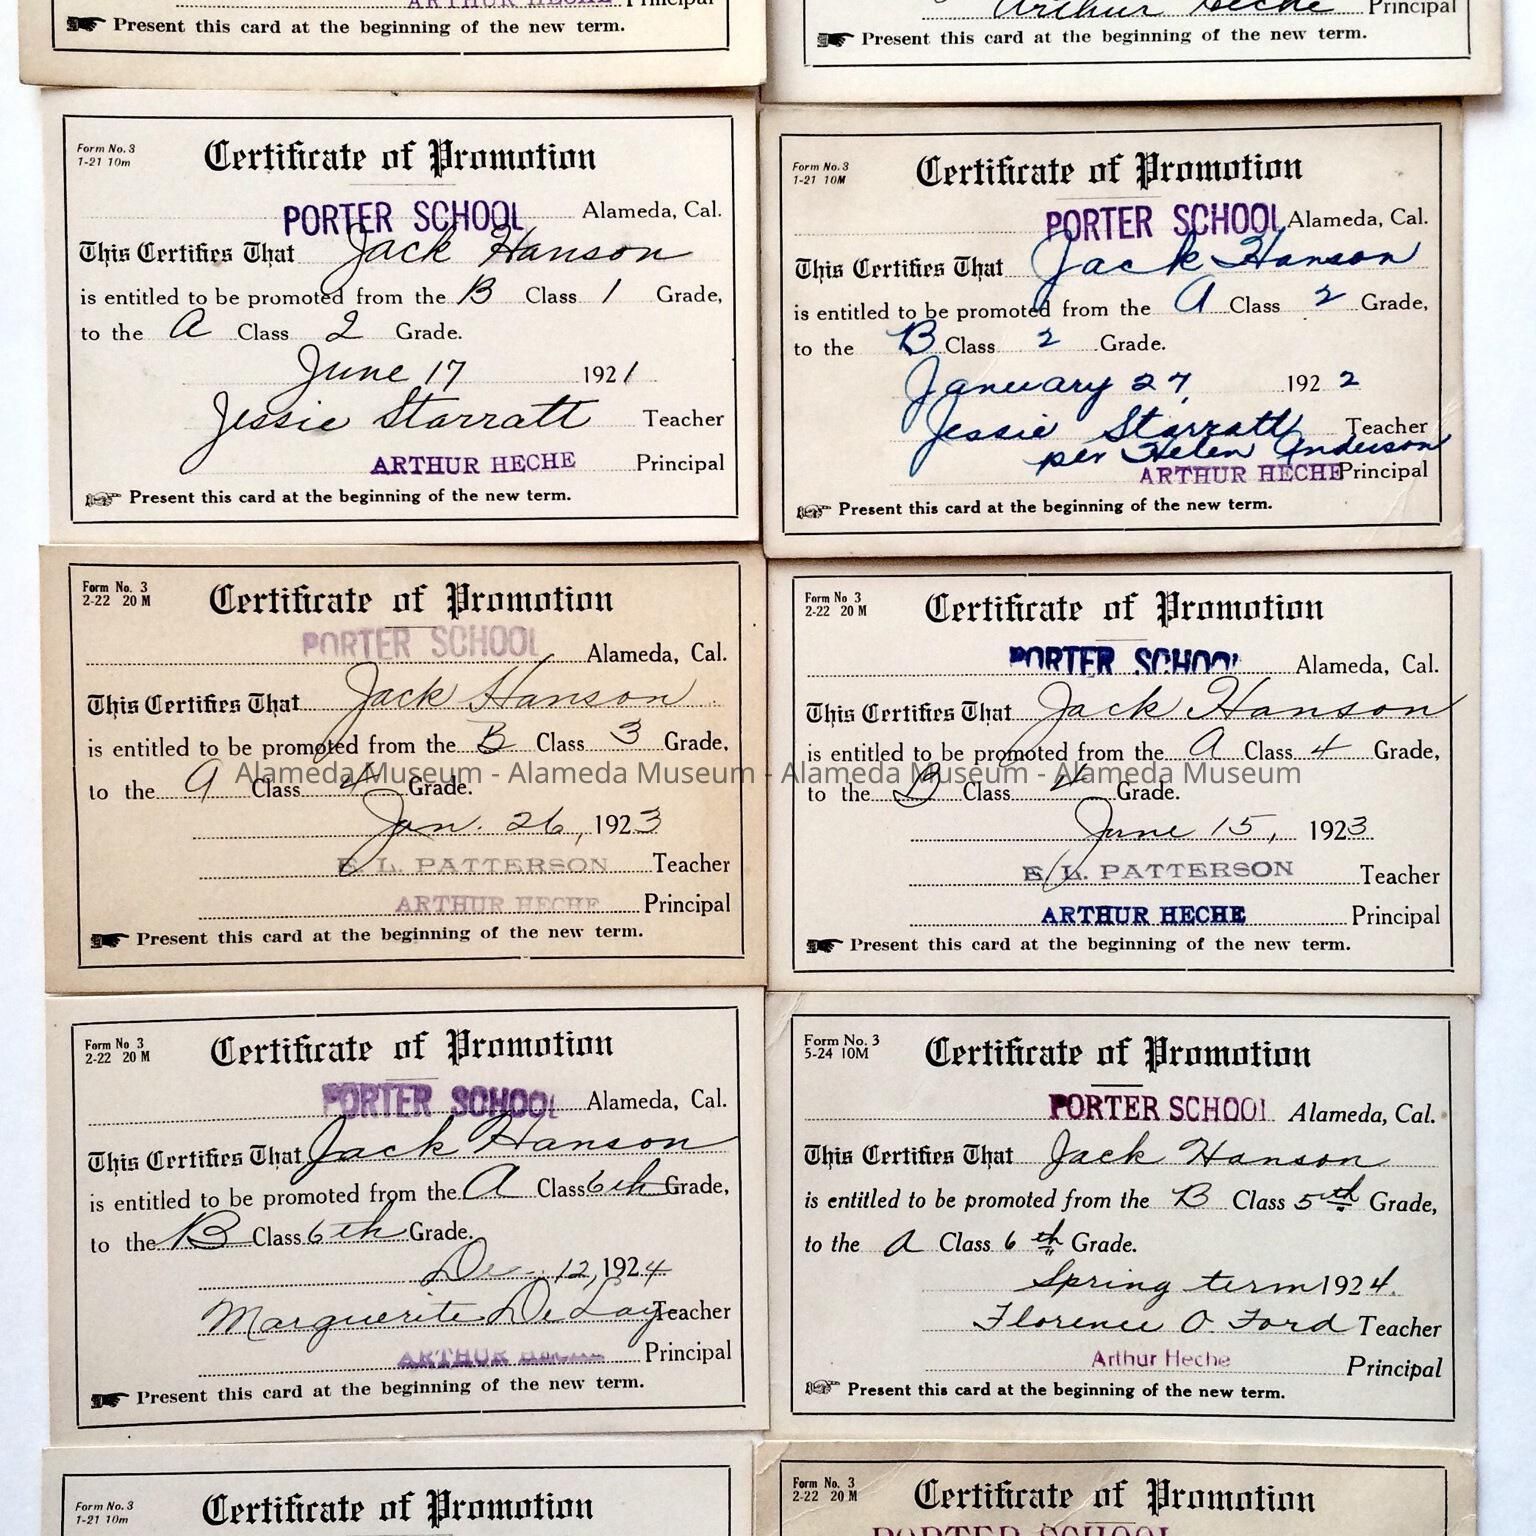 ARTHUR HECHE Principal
Present this card at the beginning of the new term.
Arthur Heche Principal
Present this card at the beginning of the new term.
Form No. 3
1-21 10m
Certificate of Promotion
PORTER SCHOOL Alameda, Cal.
This Certifies That Jack Hanson
is entitled to be promoted from the B Class 1 Grade,
to the A Class 2 Grade.
June 17 1921
Jessie Starratt Teacher
ARTHUR HECHE Principal
Present this card at the beginning of the new term.
Form No. 3
1-21 10M
Certificate of Promotion
PORTER SCHOOL Alameda, Cal.
This Certifies That Jack Hanson
is entitled to be promoted from the A Class 2 Grade,
to the B Class 2 Grade.
January 27, 1922
Jessie Starratt Teacher
per Helen Anderson
ARTHUR HECHE Principal
Present this card at the beginning of the new term.
Form No. 3
2-22 20 M
Certificate of Promotion
PORTER SCHOOL Alameda, Cal.
This Certifies That Jack Hanson
is entitled to be promoted from the B Class 3 Grade,
to the A Class 4 Grade.
Jan. 26, 1923
E. L. PATTERSON Teacher
ARTHUR HECHE Principal
Present this card at the beginning of the new term.
Form No 3
2-22 20 M
Certificate of Promotion
PORTER SCHOOL Alameda, Cal.
This Certifies That Jack Hanson
is entitled to be promoted from the A Class 4 Grade,
to the B Class 4 Grade.
June 15, 1923
E. L. PATTERSON Teacher
ARTHUR HECHE Principal
Present this card at the beginning of the new term.
Alameda Museum - Alameda Museum - Alameda Museum - Alameda Museum
Form No 3
2-22 20 M
Certificate of Promotion
PORTER SCHOOL Alameda, Cal.
This Certifies That Jack Hanson
is entitled to be promoted from the A Class 6th Grade,
to the B Class 6th Grade.
De- 12, 1924
Marguerite De Lay Teacher
ARTHUR HECHE Principal
Present this card at the beginning of the new term.
Form No. 3
5-24 10M
Certificate of Promotion
PORTER SCHOOL Alameda, Cal.
This Certifies That Jack Hanson
is entitled to be promoted from the B Class 5th Grade,
to the A Class 6th Grade.
Spring term 1924.
Florence O. Ford Teacher
Arthur Heche Principal
Present this card at the beginning of the new term.
Form No. 3
1-21 10m
Certificate of Promotion
Form No. 3
2-22 20 M
Certificate of Promotion
PORTER SCHOOL